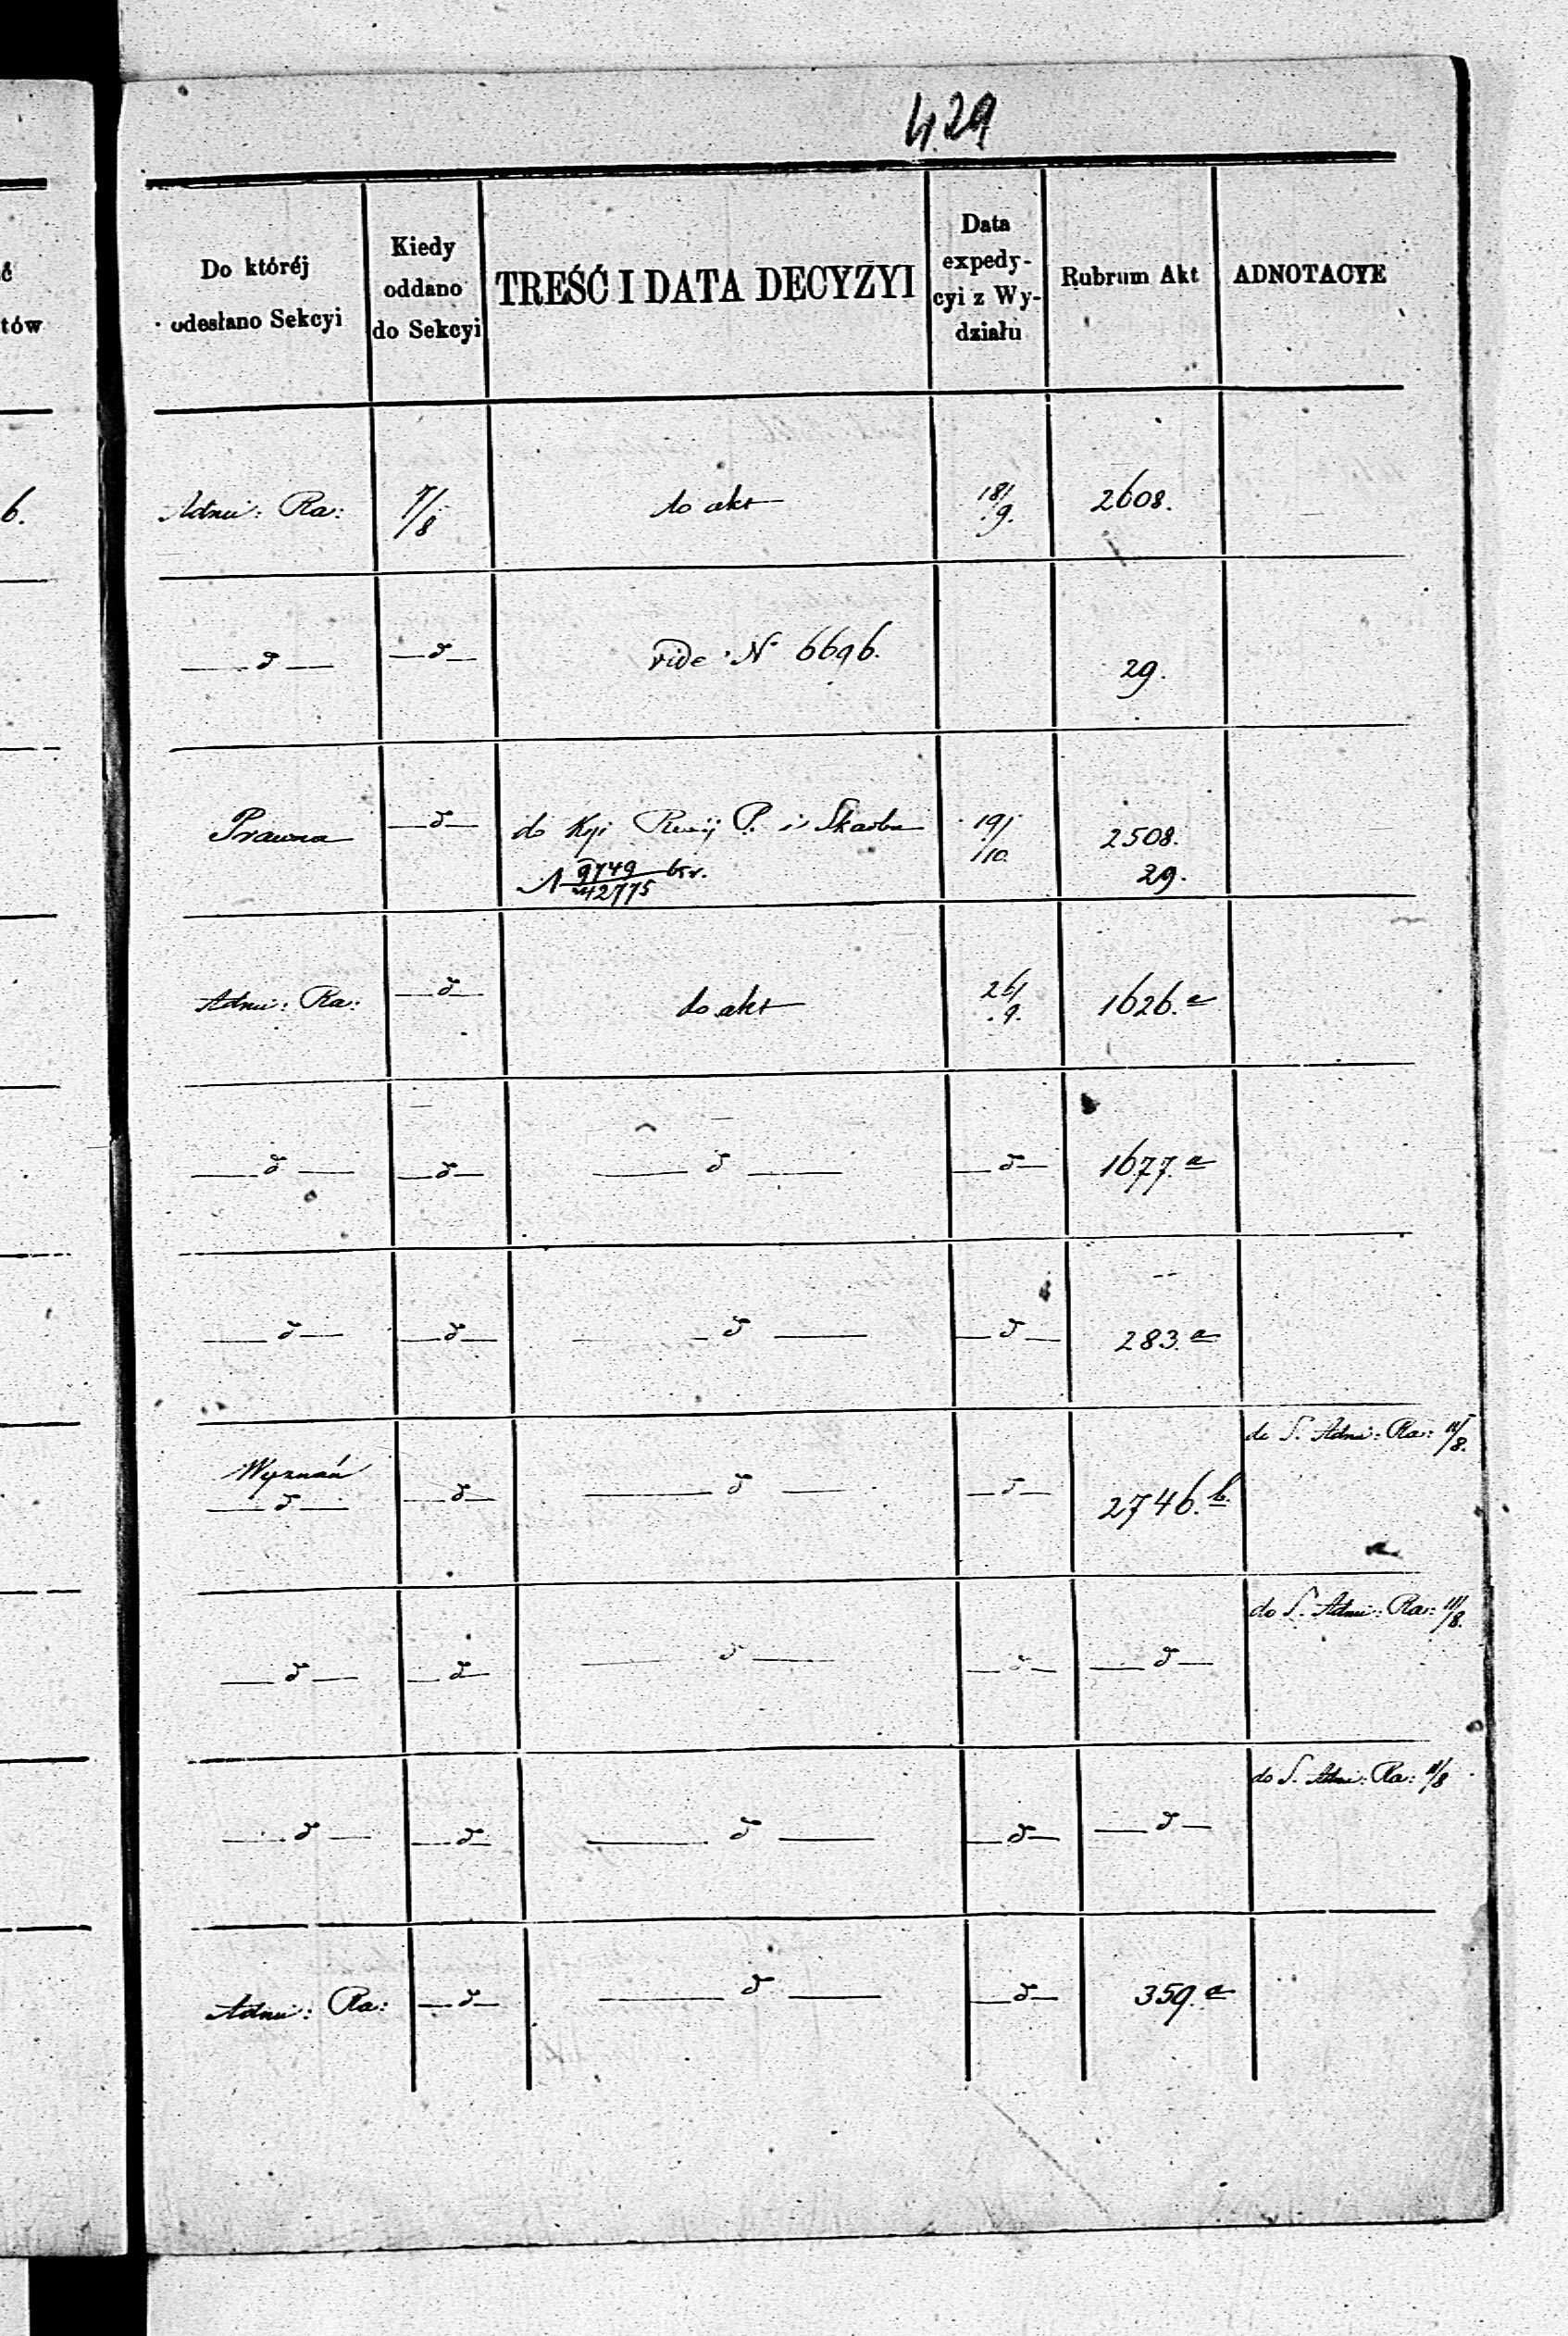 429
ć
tów
6.
Do któréj
odesłano Sekcyi
Kiedy
oddano
do Sekcyi
TREŚĆ I DATA DECYZYI
Data
expedy-
cyi z Wy-
działu
Rubrum Akt
ADNOTACYE
Adm: Ra: 7/8 do akt 18/9. 2608.
— d — — d — vide N° 6696. 29.
Prawna — d — do P. i Skarbu 19/10. 2508.
9749/42775 29.
Adm: Ra: — d — do akt 26/9. 1626.a
— d — — d — — d — — d — 1677.a
— d — — d — — d — — d — 283.a
do S. Adm: Ra: 11/8.
Wyznań
— d — — d — — d — — d — 2746.b
do S. Adm: Ra: 11/8.
— d — — d — — d — — d — — d —
do S. Adm: Ra: 11/8
— d — — d — — d — — d — — d —
Adm: Ra: — d — — d — — d — 359.a